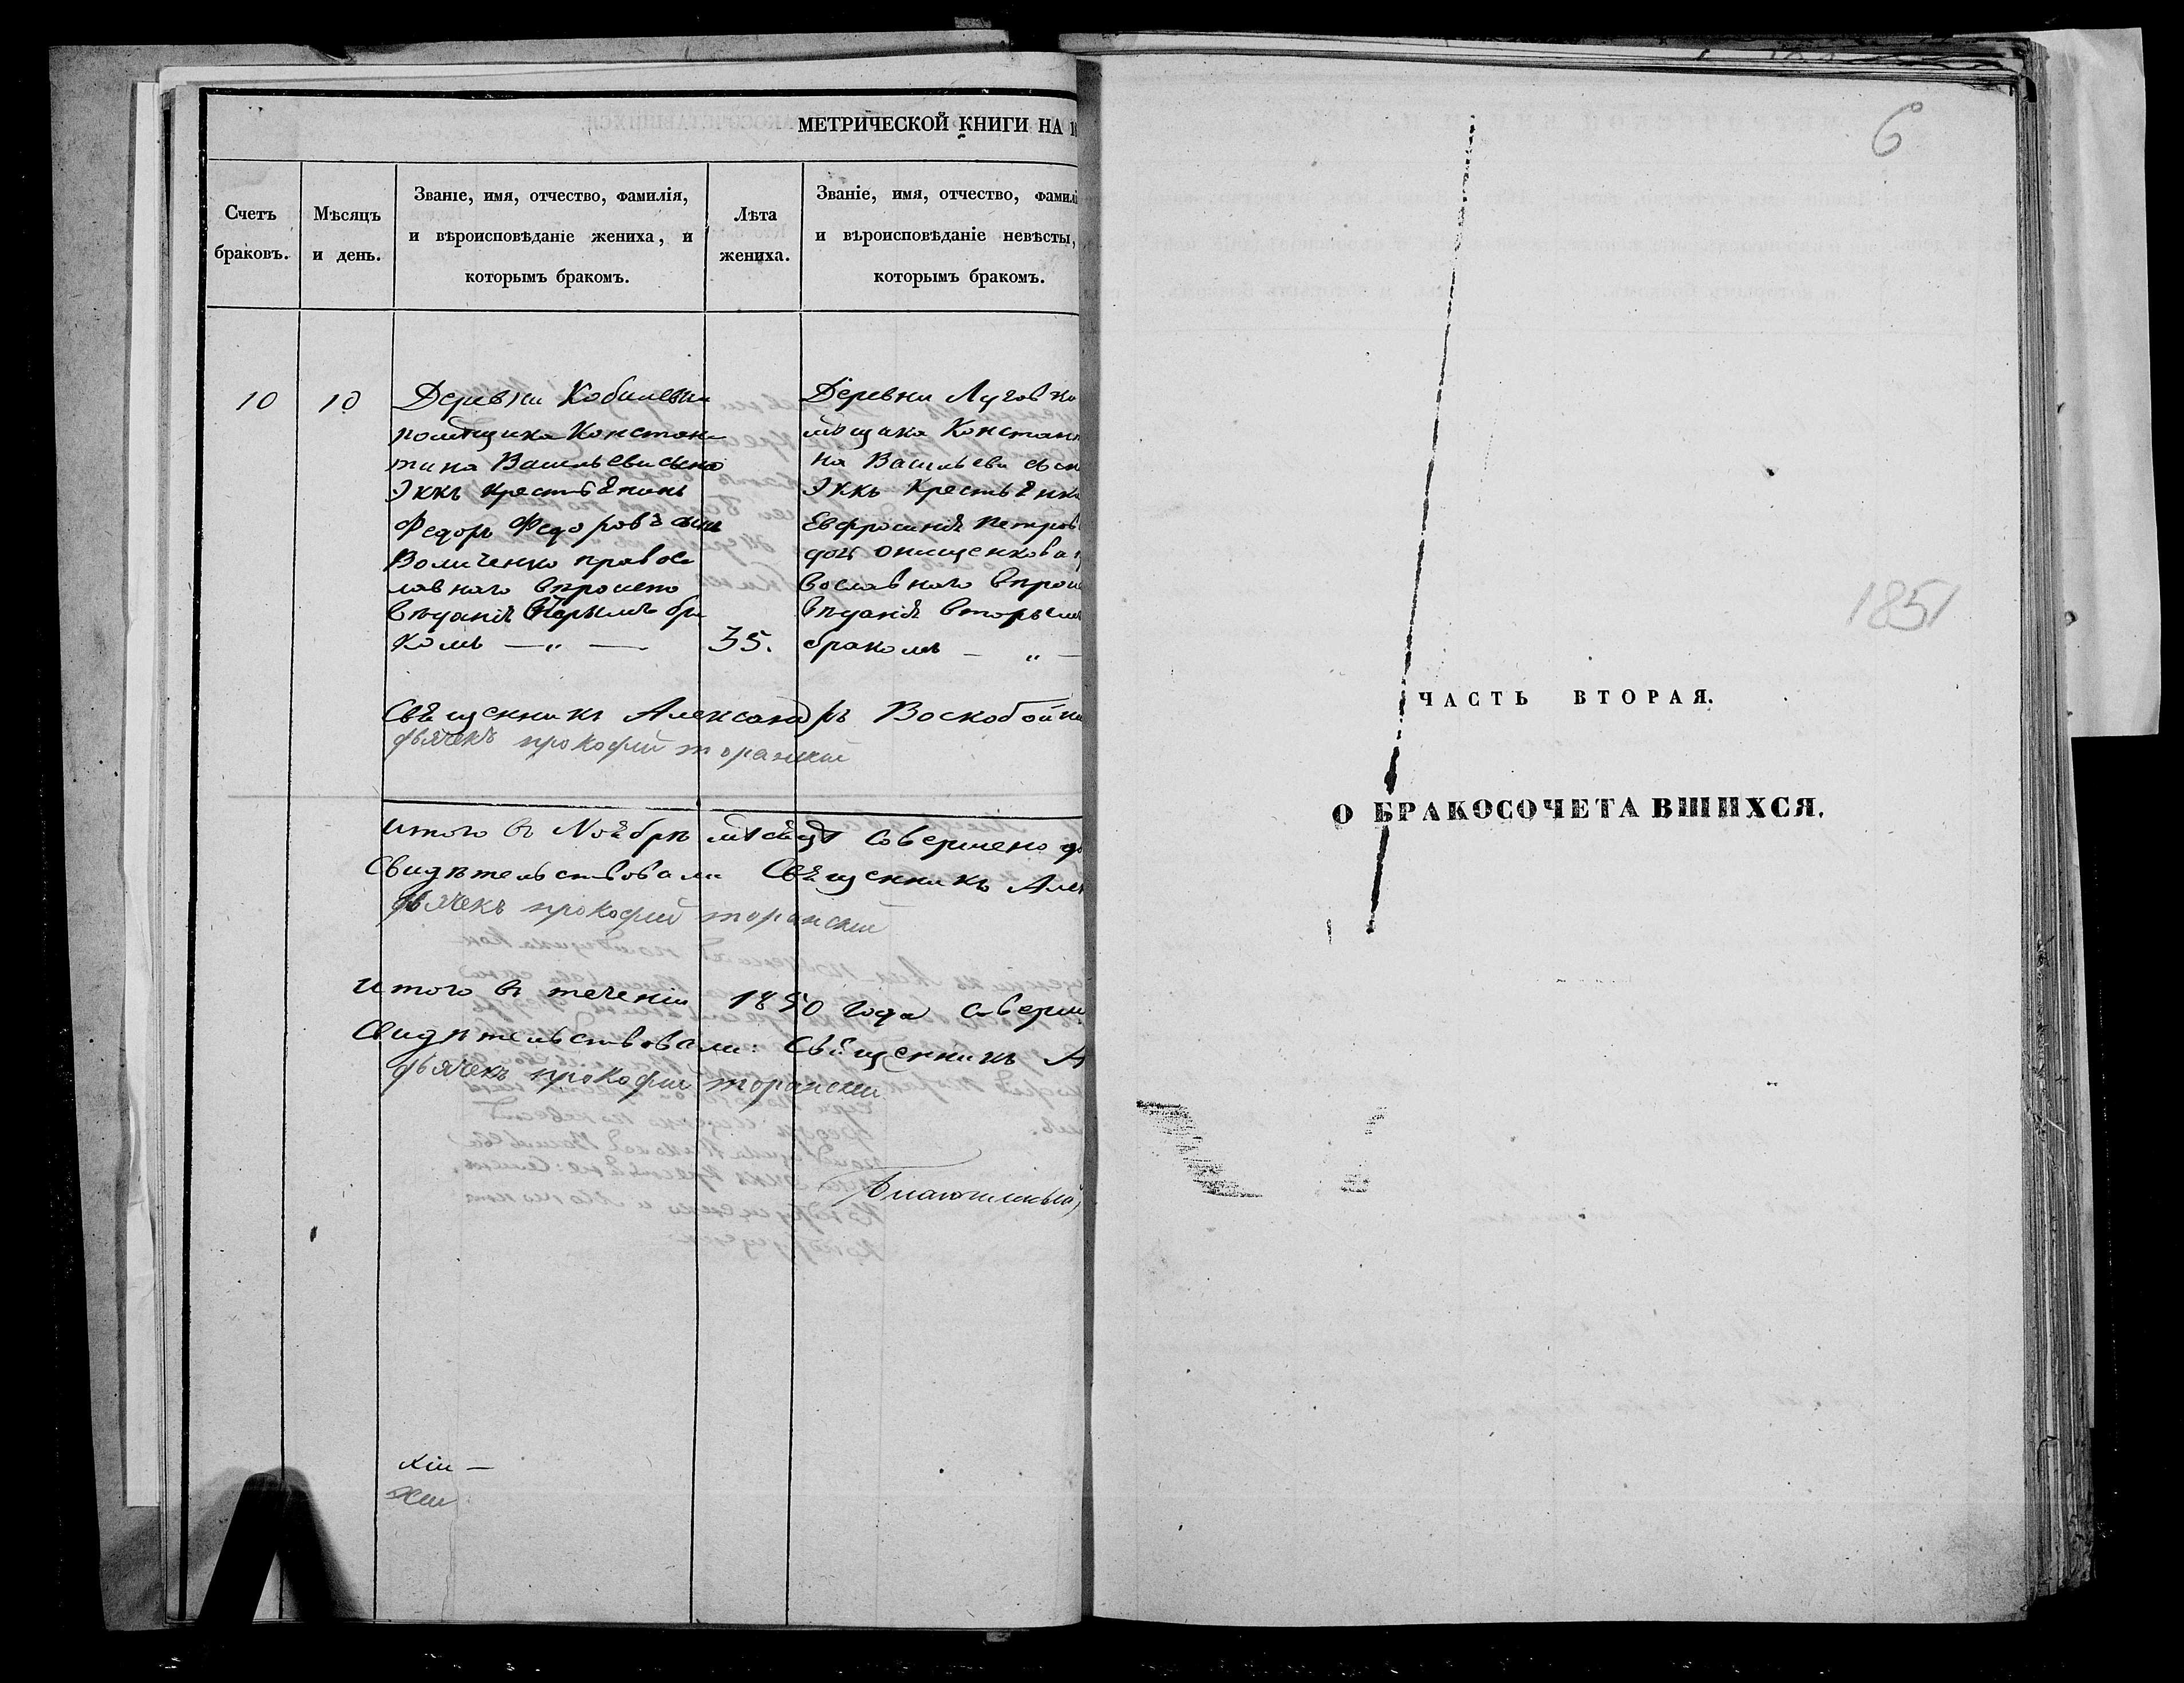 МЕТРИЧЕСКОЙ КНИГИ НА 1
Счетъ браковъ.
Мѣсяцъ и день.
Званіе, имя, отчество, фамилія,
и вѣроисповѣданіе жениха, и
которымъ бракомъ.
Лѣта жениха.
Званіе, имя, отчество, фамилі
и вѣроисповѣданіе невѣсты,
которымъ бракомъ.
10
10
Деревни Кобилевки
помѣщика Констан
тина Васильева сына
Эккъ крестьѣнинъ
Федоръ Федоровъ сынъ
Воличенко правос
лавнаго вѣроиспо
вѣданіѣ первымъ бра
комъ — „ —
35.
Деревни Луговки
мѣщика Констант
на Васильева сын
Эккъ Крестьѣнка
Евфросиніѣ Петров
дочь Онищенкова п
вославнаго вѣрои
вѣданіѣ вторымъ
бракомъ — „ —
Свѣщенникъ Александръ Воскобойни
дьячекъ прокофій торанскій
итого въ Ноѣбрѣ мѣсѣцѣ совершено
Свидѣтельствовали Свѣщенникъ Алек
дьячекъ прокофій торанскій
итого въ теченіи 1850 года соверш
Свидѣтельствовали: Свѣщенникъ А
дьячекъ прокофій торанскій
6
1851
ЧАСТЬ ВТОРАЯ.
О БРАКОСОЧЕТАВШИХСЯ.